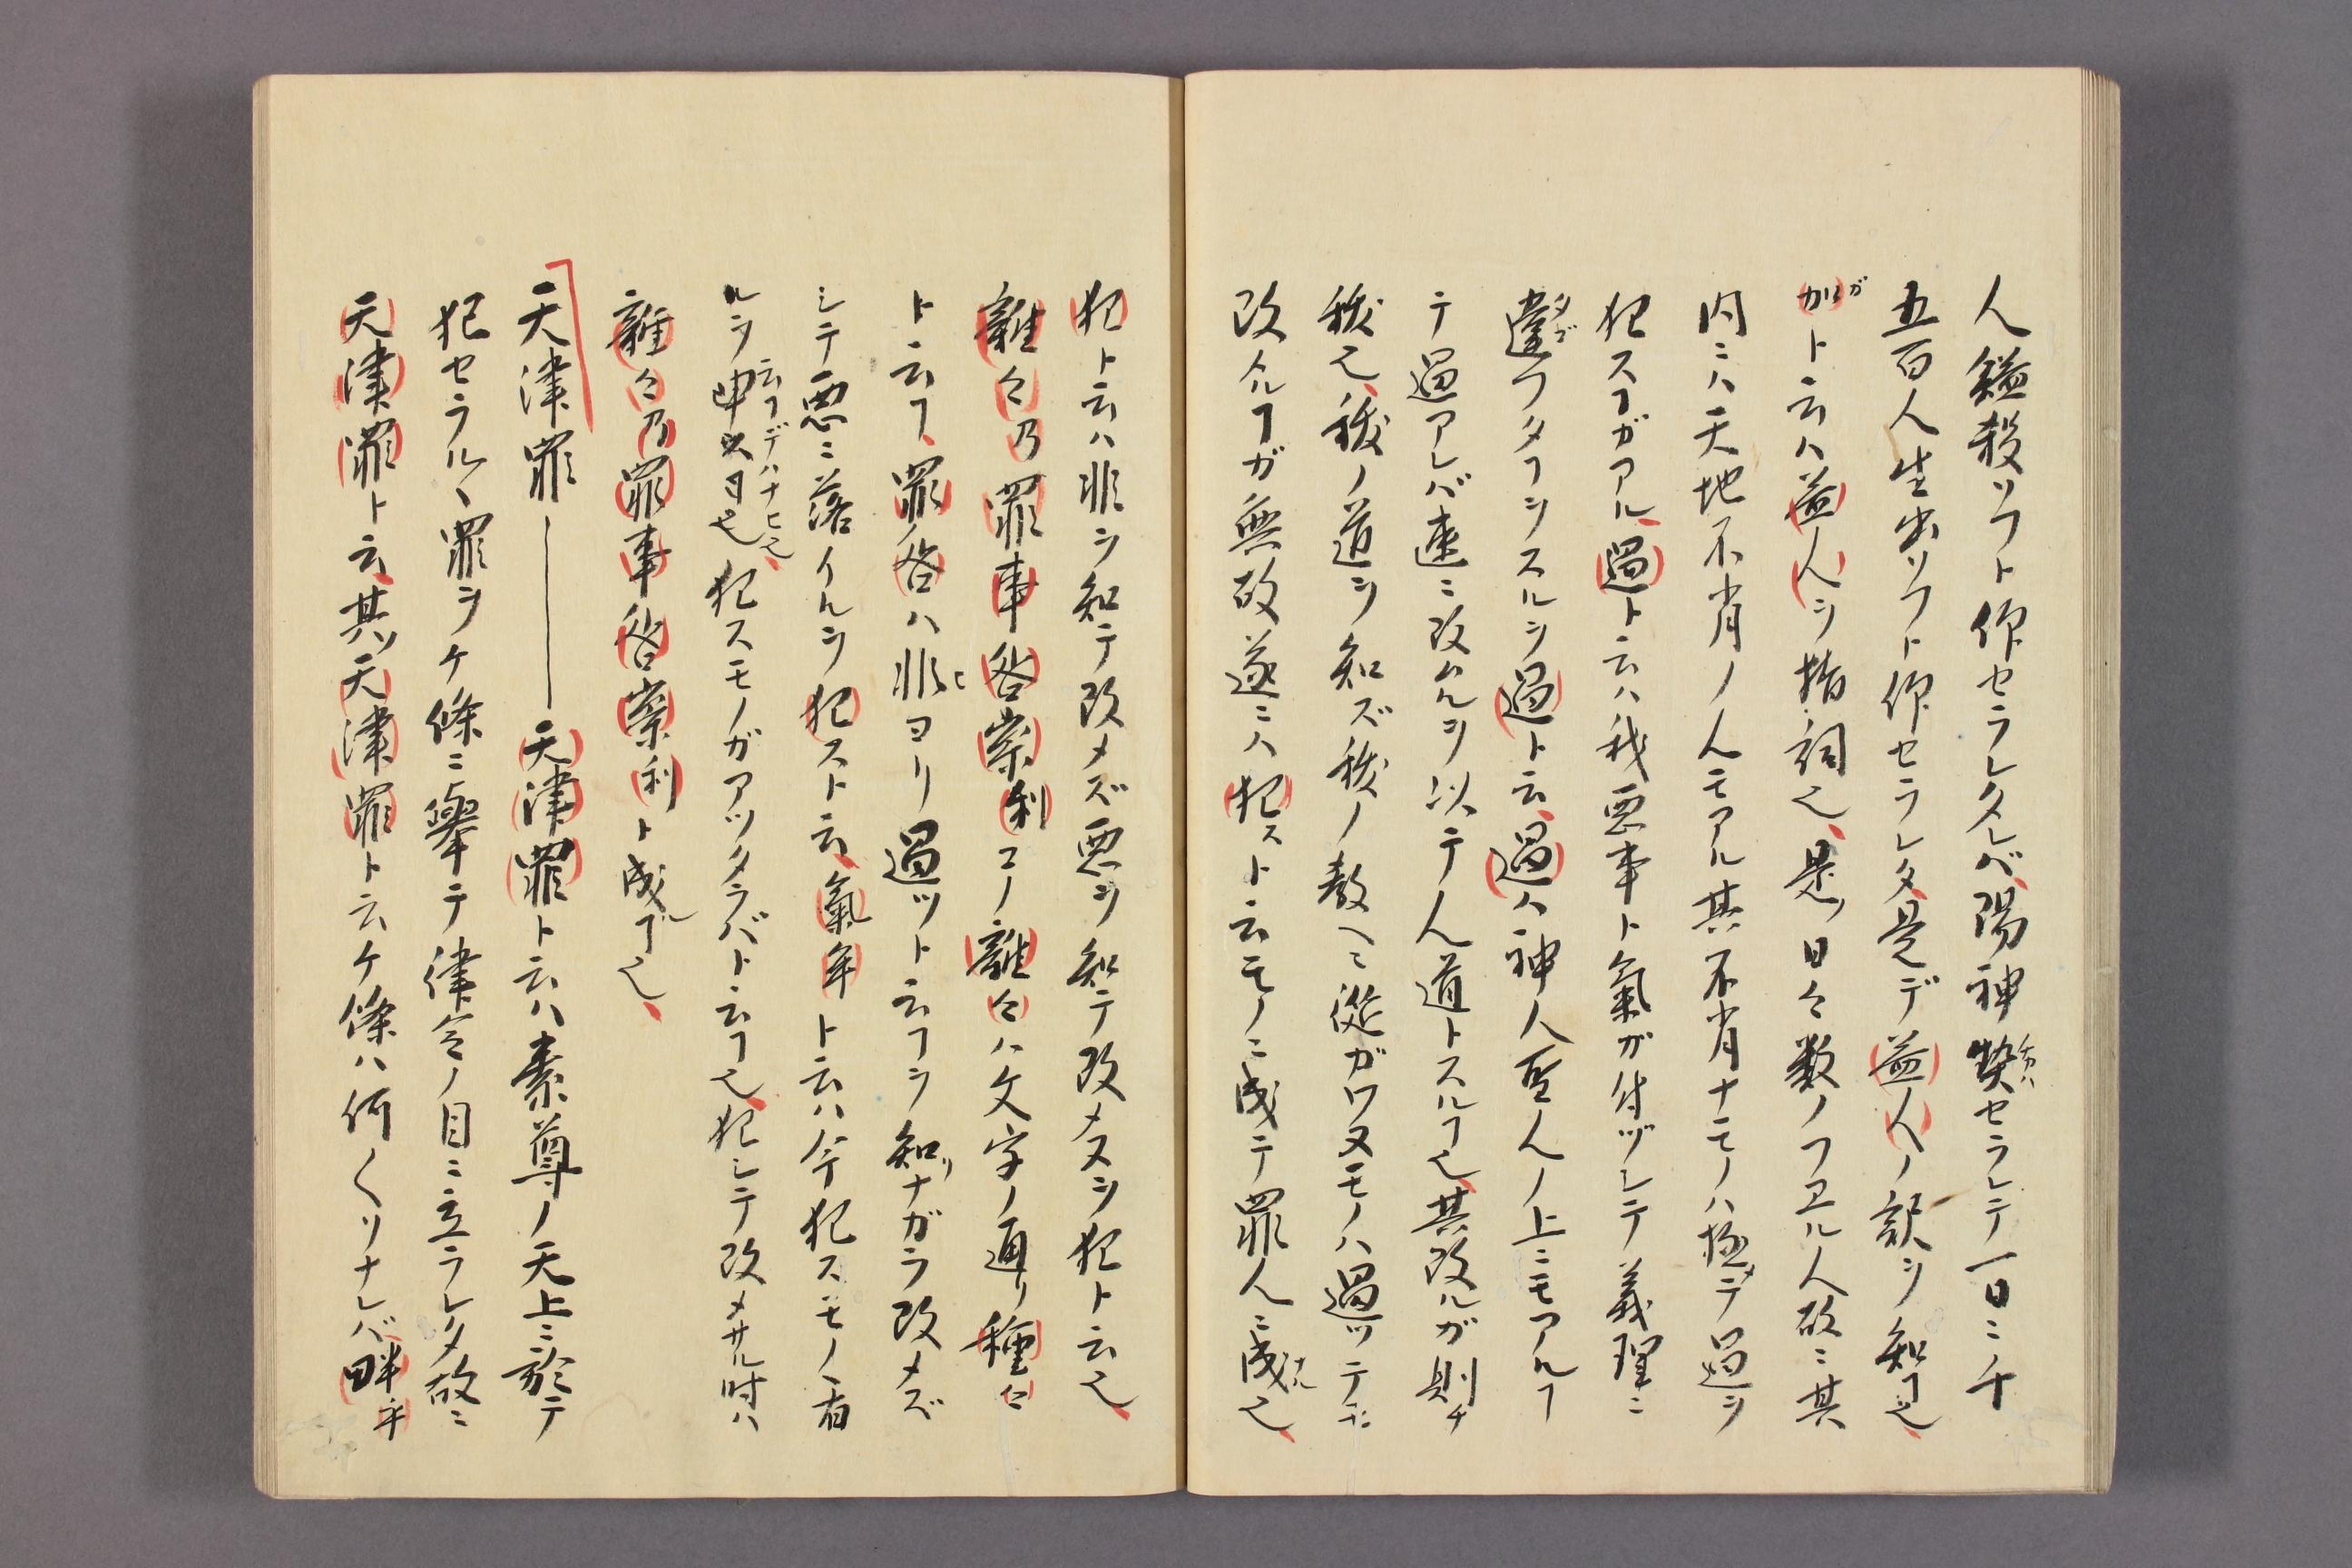 人縊殺ソフト仰セラレタレバ陽神契セラレテ一日ニ千
五百人生出ソフト仰セラレタ是デ益人ノ訳ヲ知ヿ也
加ガト云ハ益人ヲ指詞也是ノ日々数ノフヱル人故ニ其
内ニハ天地不肖ノ人モアル其不肖ナモノハ極メテ過ヲ
犯スヿガアル過ト云ハ我悪事ト氣が付ヅシテ義理ニ
違フタヿヲスルヲ過ト云過ハ神人聖人ノ上ニモアルヿ
テ過アレバ速ニ改ムルヲ以テ人道トスルヿ也其改ルガ則チ
祓也祓ノ道ヲ知ズ祓ノ教ヘニ從ガワヌモノハ過ツテモ
改ムルヿガ無故遂ニハ犯スト云モノニ成テ罪人ニ成ル也
犯ト云ハ非ヲ知テ改メズ悪ヲ知テ改メヌヲ犯ト云也
雜々乃罪事咎祟利コノ雜々ハ文字ノ通リ種々
ト云ヿ罪ノ咎ハ非ヒヨリ過ツト云ヿヲ知リナガラ改メズ
シテ悪ニ落イルヲ犯スト云氣年ト云ハ今犯スモノヽ有
ルヲ申
云フデハナヒ也
犯スモノガアツタラバト云ヿ也犯シテ改メサル時ハ
雜々乃罪事咎祟利ト成ルヿ也
天津罪――天津罪ト云ハ素尊ノ天上ニ於テ
犯セラルヽ罪ヲケ條ニ擧テ律令ノ目ニ立ラレタ故ニ
天津罪ト云其ソ天津罪ト云ケ條ハ何〱ソナレバ畔